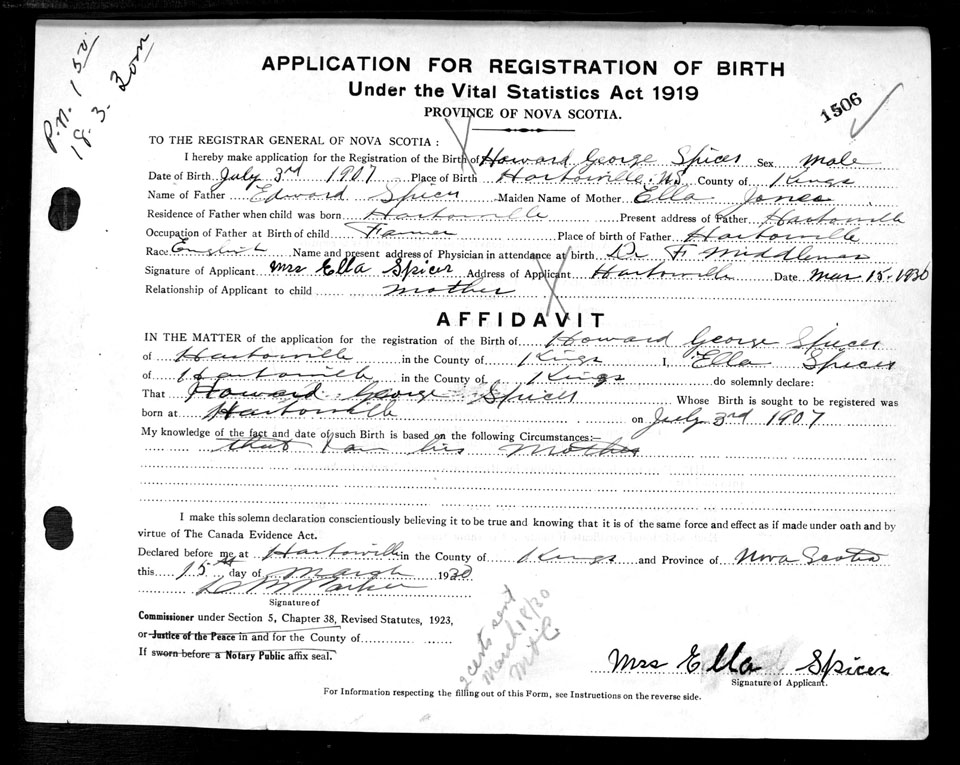 P.N. 150
18.3.30 m
APPLICATION FOR REGISTRATION OF BIRTH
Under the Vital Statistics Act 1919
PROVINCE OF NOVA SCOTIA.
1506
TO THE REGISTRAR GENERAL OF NOVA SCOTIA :
I hereby make application for the Registration of the Birth of Howard George Spicer Sex male
Date of Birth July 3rd 1907 Place of Birth Hartonville N.S. County of Kings
Name of Father Edward Spicer Maiden Name of Mother Ella Jones
Residence of Father when child was born Hartonville Present address of Father Hartonville
Occupation of Father at Birth of child Farmer Place of birth of Father Hartonville
Race English Name and present address of Physician in attendance at birth Dr F.
Signature of Applicant Mrs Ella Spicer Address of Applicant Hartonville Date Mar 15-1930
Relationship of Applicant to child mother
AFFIDAVIT
IN THE MATTER of the application for the registration of the Birth of Howard George Spicer
of Hartonville in the County of Kings I, Ella Spicer
of Hartonville in the County of Kings do solemnly declare:
That Howard George Spicer Whose Birth is sought to be registered was
born at Hartonville on July 3rd 1907
My knowledge of the fact and date of such Birth is based on the following Circumstances:—
that I am his Mother
I make this solemn declaration conscientiously believing it to be true and knowing that it is of the same force and effect as if made under oath and by
virtue of The Canada Evidence Act.
Declared before me at Hartonville in the County of Kings and Province of Nova Scotia
this 15st day of March 1930
Parker
Signature of
Commissioner under Section 5, Chapter 38, Revised Statutes, 1923,
or Justice of the Peace in and for the County of
If sworn before a Notary Public affix seal.
2 certs sent
March 18/30
Mrs Ella Spicer
Signature of Applicant.
For Information respecting the filling out of this Form, see Instructions on the reverse side.